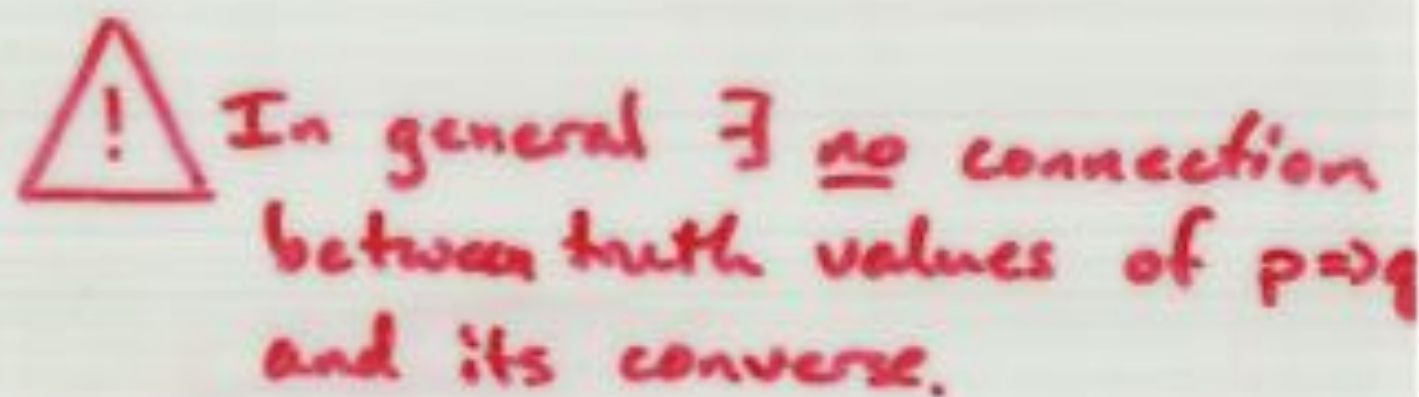 ! In general ∃ no connection
between truth values of p⇒q
and its converse.